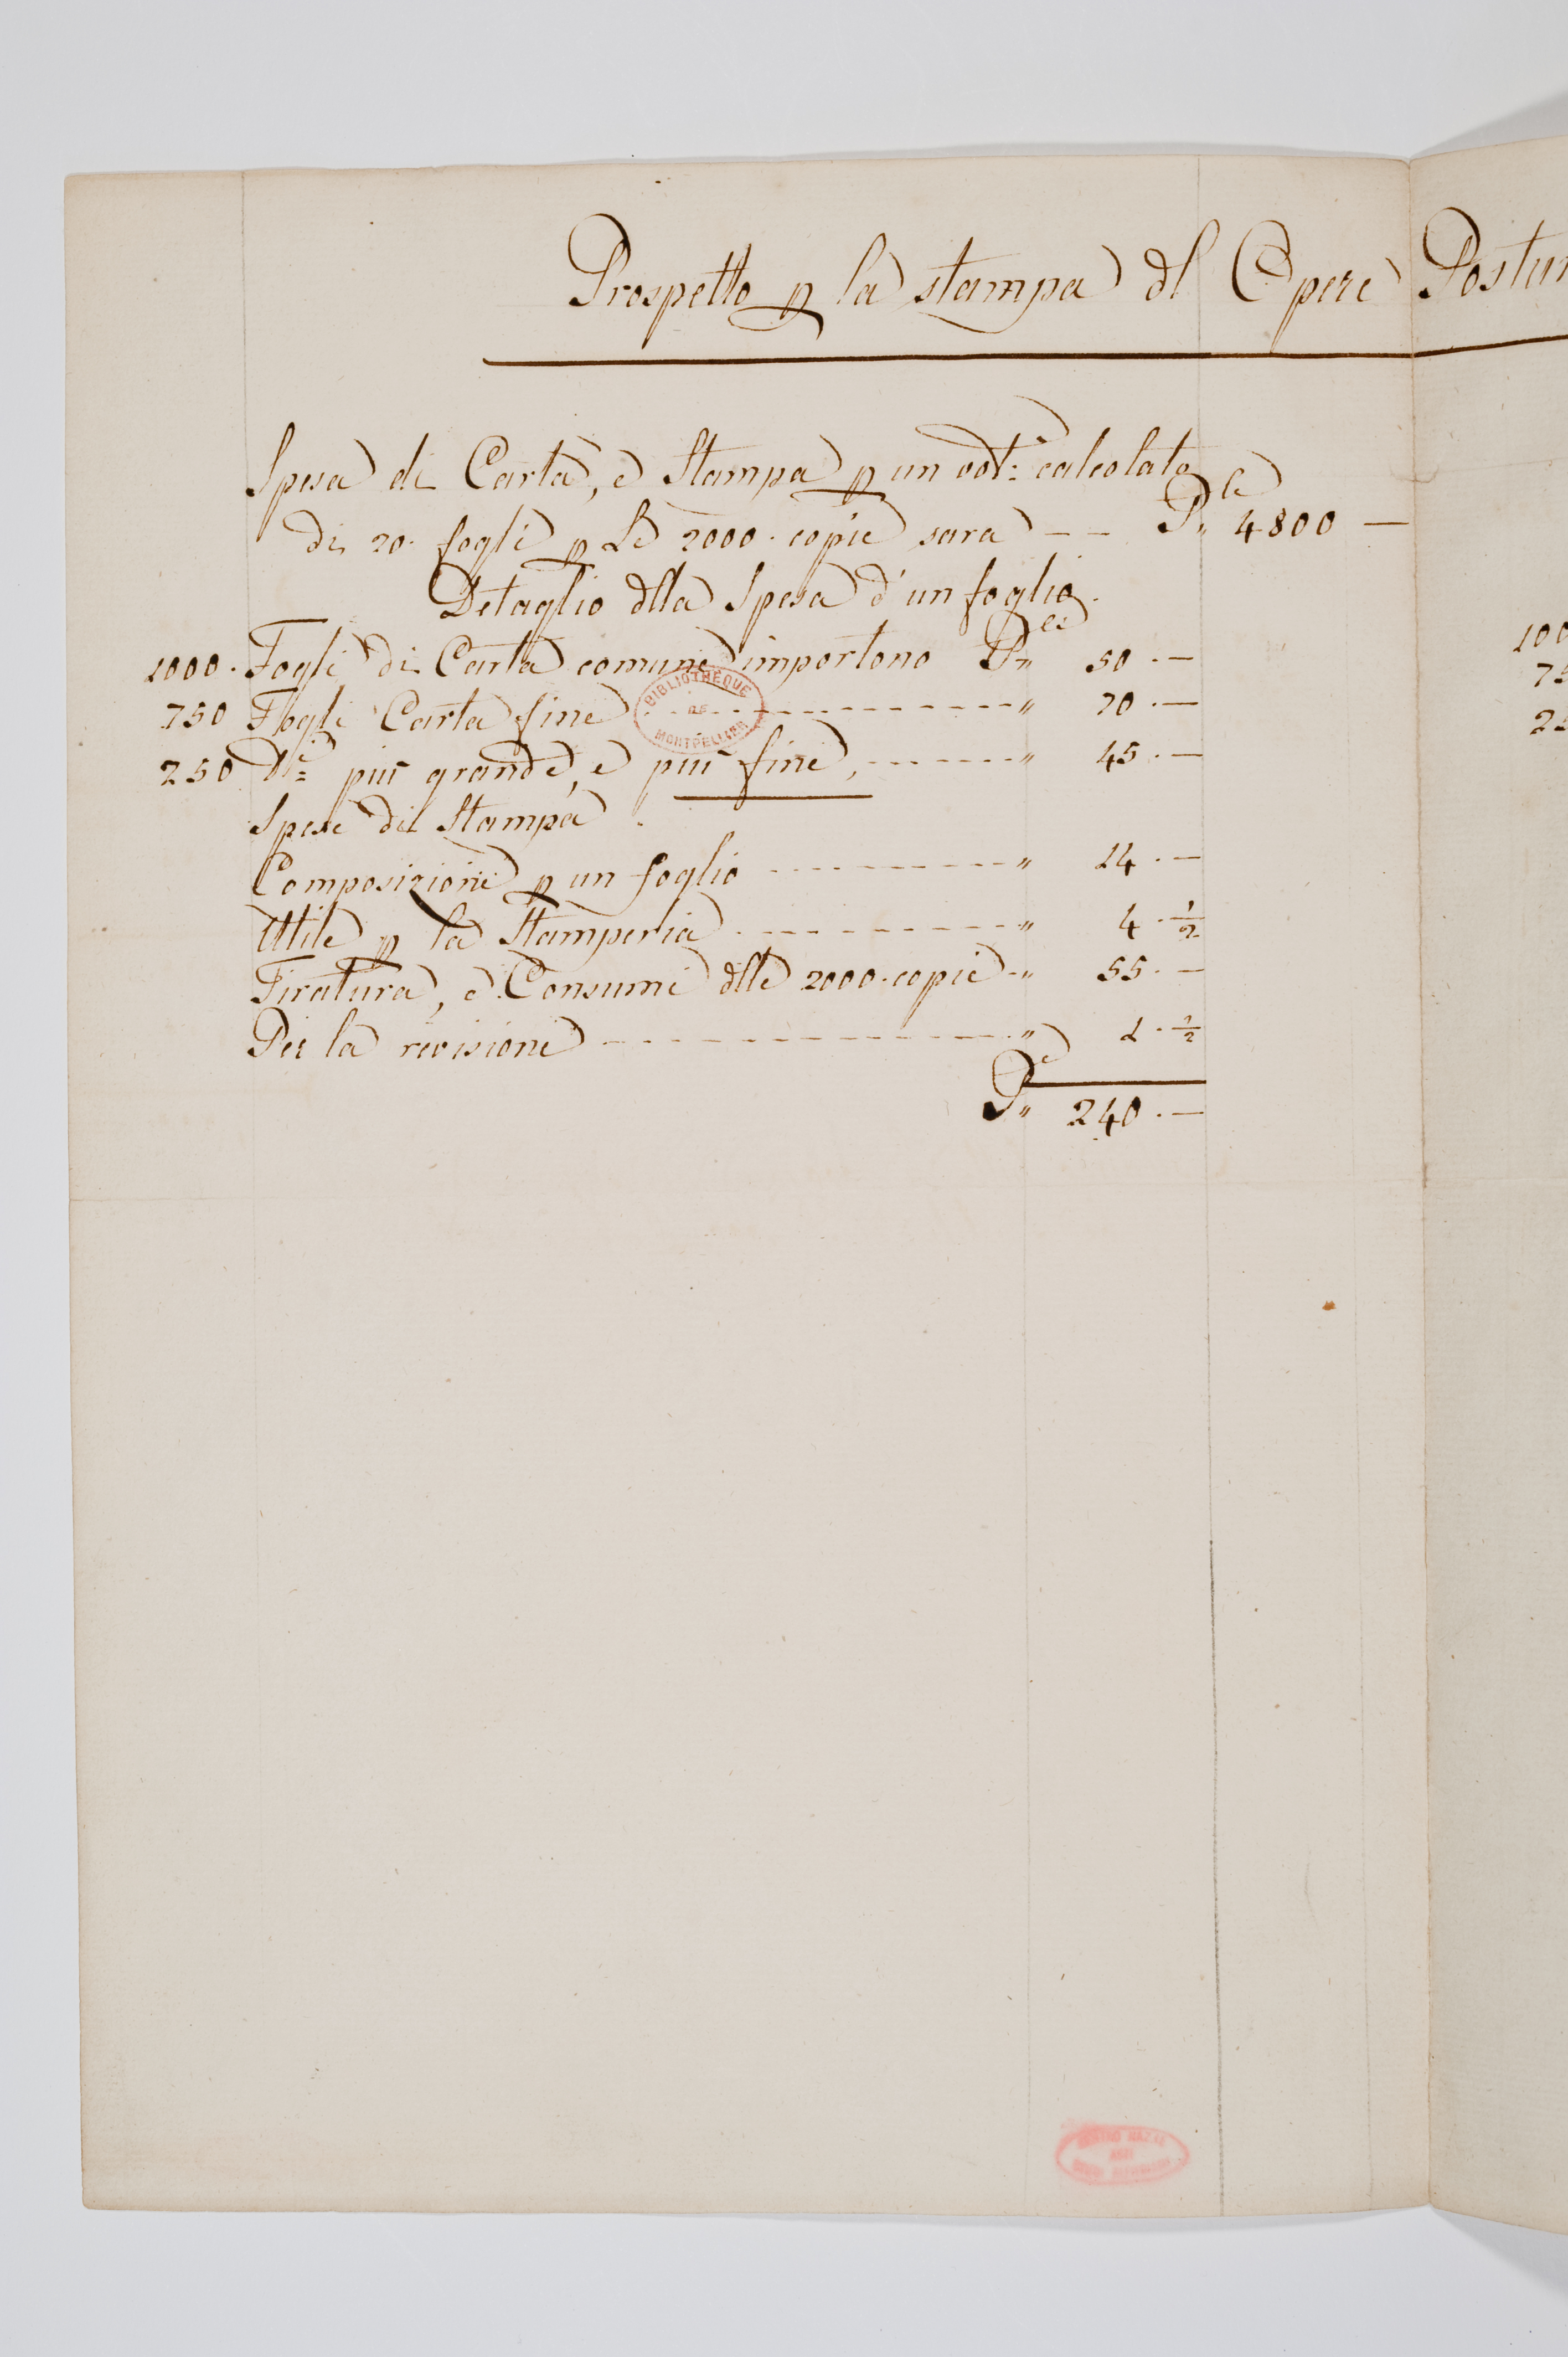 Prospetto p la stampa dl Opere Postu
Spesa di Carta, e Stampa p un vol: calcolato
di 20. fogli p Le 2000. copie sara -- Pe" 4800 —
Detaglio dlla Spesa d'un foglio.
1000. Fogli di Carta comune importono Pes" 50.—
750 Fogli Carta fine " 70.—
250 più grande, e più fine, " 45.—
Spese di Stampa.
Composizione p un foglio " 14.—
Utile p la Stamperia " 4.1/2
Tiratura, e Consumi dlle 2000. copie " 55.—
Per la revisione " 1.1/2
Pe" 240.—
BIBLIOTHEQUE
DE
MONTPELLIER
100
75
25